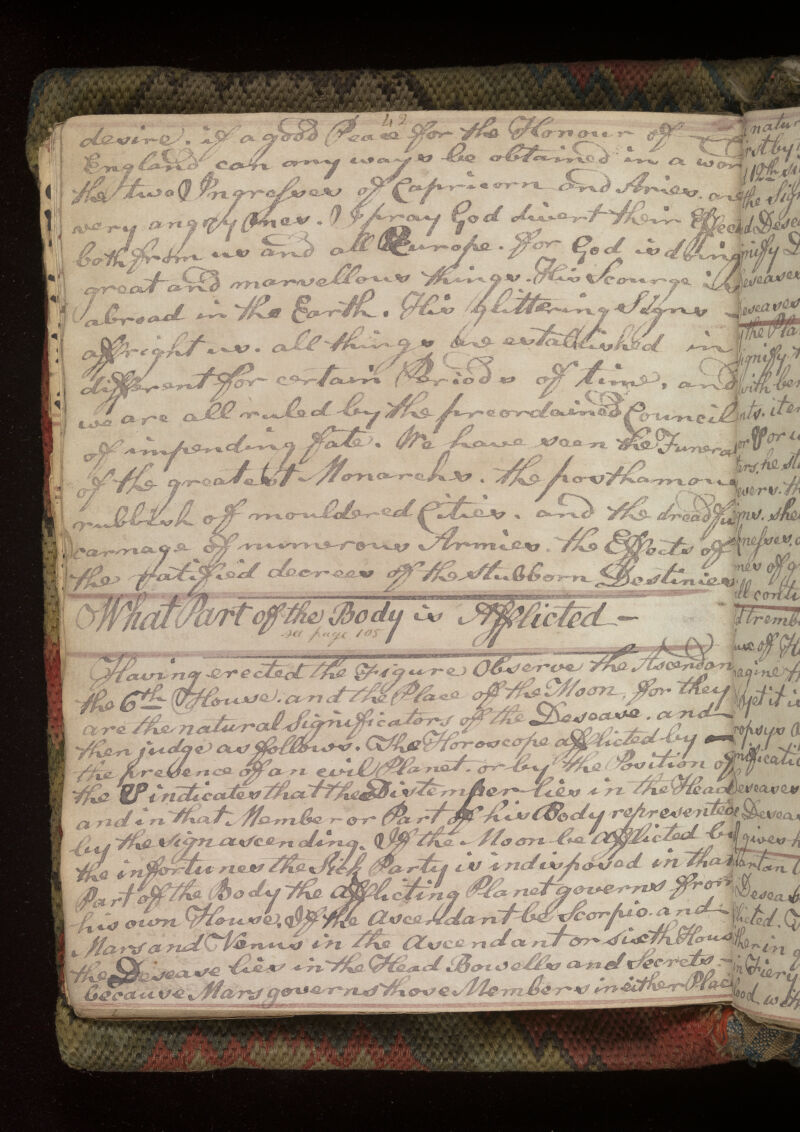 42
desire. if a good Peace for the Honour of
England can any ways be obtained in a wor
the two Ingresses of Capricorn and Aries. are
very angry Ones. I pray God divert their Effec
both from us and all Europe. for God is doing
great and marvellous things. His Scourge is
abroad in the Earth. His glittering Signs -
affright us. all things are established in
different for certain Periods of time. and
we are all ruled by the preordained Council
of impending fate. We have seen the Funeral
of the greatest Monarchs. the posthamous
rubbish of mouldered Cities. and the dreadfu
carnage of numerous Armies. the Effects of
the ratified decrees of the stubborn Destinies
What Part of the Body is Afflicted -
see page 105
Having erected the Figure Observe the Ascendan
the 6th House. and the Place of the Moon, for they
are the natural Significators of the Desease. and
then judge as follows. The Horoscope afflicted by -
the presence of an evil Planet. or by the Position of
the ☋ indicates that the Distemper lies in the Head
and in that Member or Part of his Body represented
by the sign ascending. If the Moon be afflicted by
the infortunes the Sick Party is indisposed in that
Part of the Body the afflicting Planet governs from
his own House. If the Ascendant be Scorpio. and
Mars and Venus in the Ascendant or sixth Hous
the Disease lies in the Head Bowells and Secrets -
because Mars governs those Members in either Plac